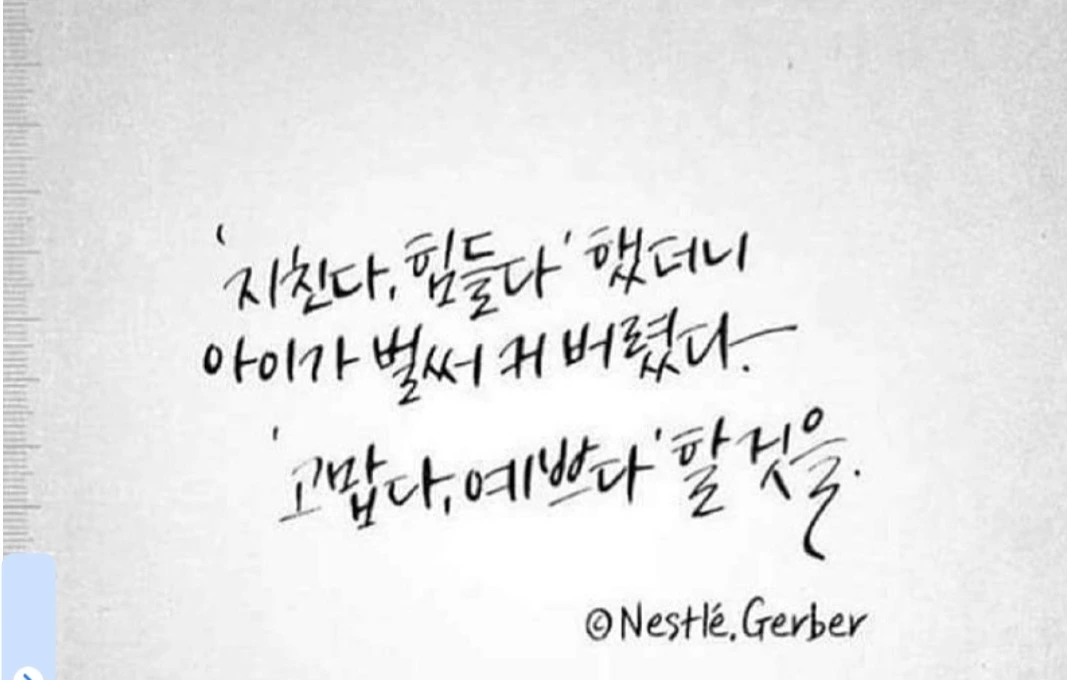 '지친다, 힘들다' 했더니
아이가 벌써 커 버렸다.
'고맙다, 예쁘다' 할 것을.
©Nestlé. Gerber